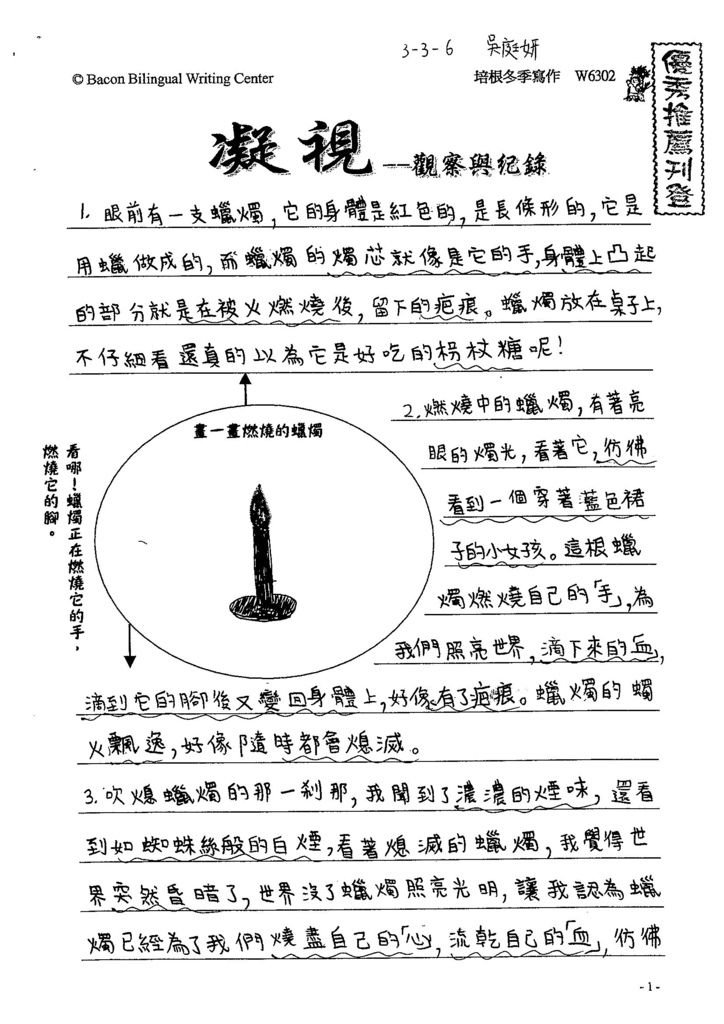 3-3-6 吳庭妍
© Bacon Bilingual Writing Center
培根冬季寫作 W6302
優秀推薦刊登
凝視—觀察與紀錄
1. 眼前有一支蠟燭，它的身體是紅色的，是長條形的，它是
用蠟做成的，而蠟燭的燭芯就像是它的手，身體上凸起
的部分就是在被火燃燒後，留下的疤痕。蠟燭放在桌子上，
不仔細看還真的以為它是好吃的柺杖糖呢！
畫一畫燃燒的蠟燭
看哪！蠟燭正在燃燒它的手，
燃燒它的腳。
2. 燃燒中的蠟燭，有著亮
眼的燭光，看著它，彷彿
看到一個穿著藍色裙
子的小女孩。這根蠟
燭燃燒自己的「手」，為
我們照亮世界，滴下來的「血」，
滴到它的腳後又變回身體上，好像有了疤痕。蠟燭的燭
火飄逸，好像隨時都會熄滅。
3. 吹熄蠟燭的那一剎那，我聞到了濃濃的煙味，還看
到如蜘蛛絲般的白煙，看著熄滅的蠟燭，我覺得世
界突然昏暗了，世界沒了蠟燭照亮光明，讓我認為蠟
燭已經為了我們燒盡自己的「心」，流乾自己的「血」，彷彿
-1-